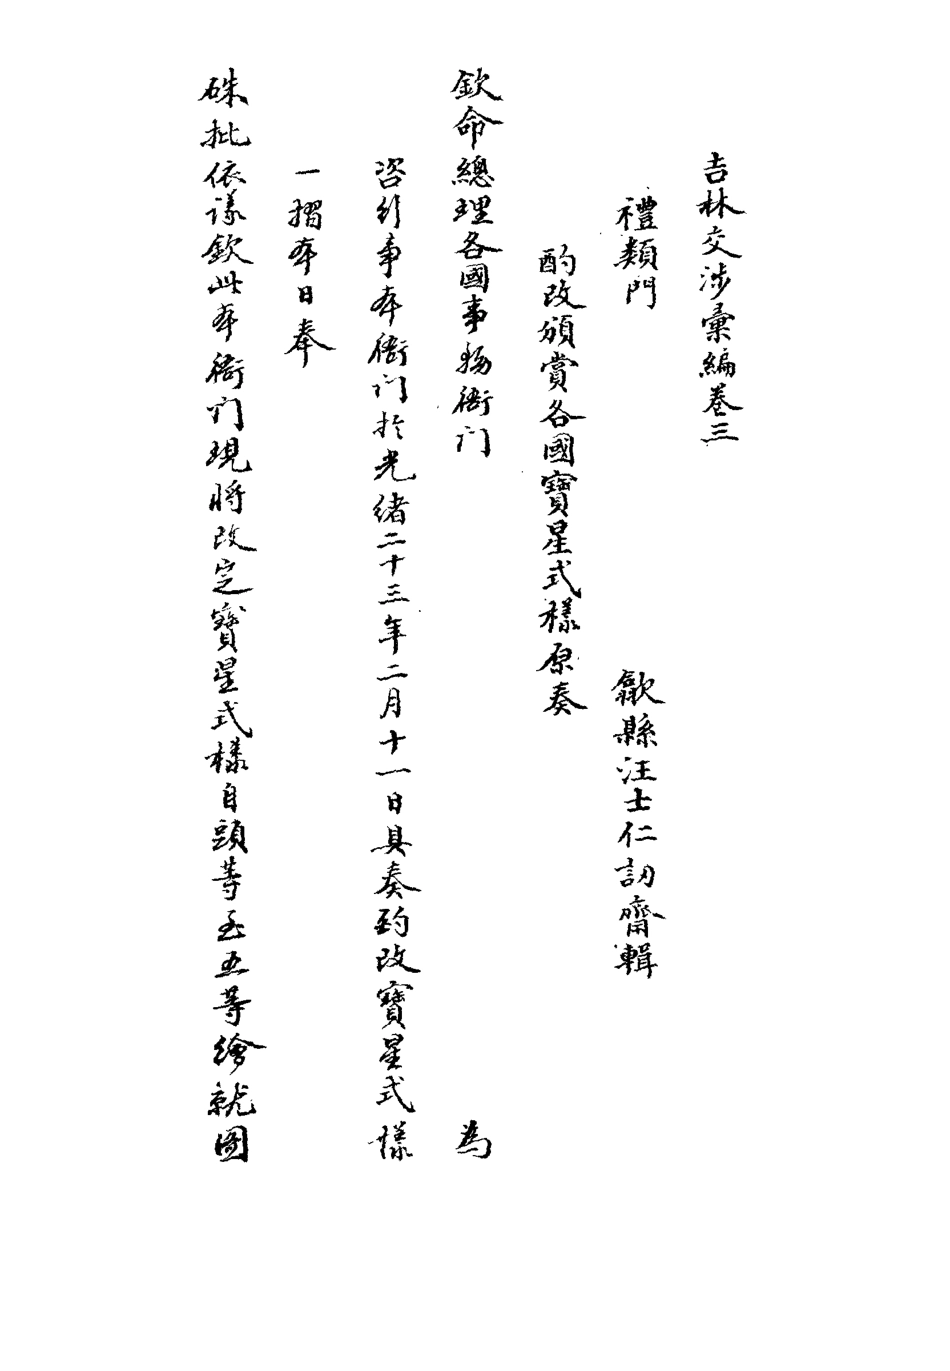 吉林交涉彙編卷三
禮類門　歙縣汪士仁訒齋輯
酌改頒賞各國寶星式樣原奏
欽命總理各國事務衙门　為
咨行事本衙门於光緒二十三年二月十一日具奏酌改寶星式樣
一摺本日奉
硃批依議欽此本衙门現將改定寶星式樣自頭等至五等繪就圖